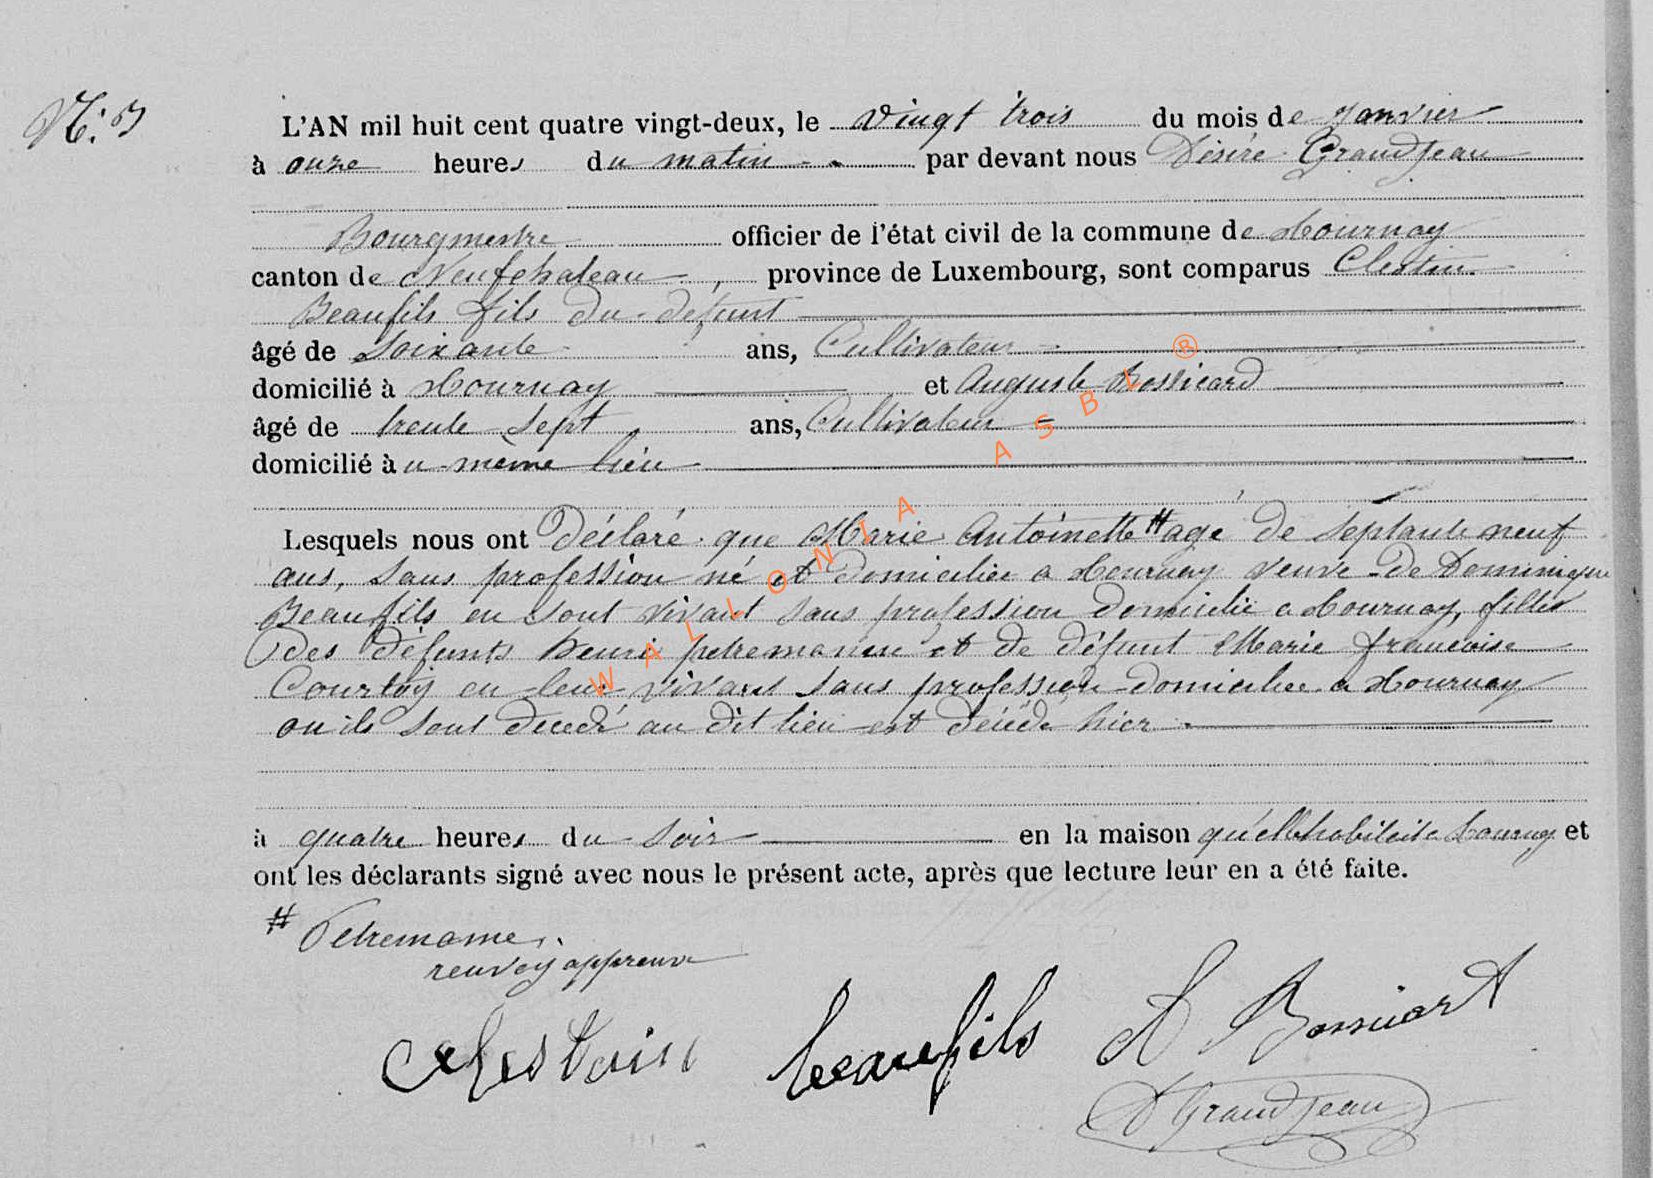 N: 3
L'AN mil huit cent quatre vingt-deux, le vingt trois du mois de Janvier
à onze heures du matin par devant nous Désiré Grandjean
Bourgmestre officier de l'état civil de la commune de Tournay
canton de Neufchateau, province de Luxembourg, sont comparus Clestin
Beaufils fils du défunt
âgé de Soixante ans, Cultivateur
domicilié à Tournay et Auguste Bossicard
âgé de trente sept ans, Cultivateur
domicilié au même lieu
Lesquels nous ont Déclaré que Marie Antoinette # agé de septante neuf
ans, sans profession né et domiciliée a Tournay veuve de Dominique
Beaufils en sont vivant sans profession domicilié a Tournay, filles
des défunts henri petremanne et de défunt Marie francoise
Courtoy en leur vivant sans profession domiciliée a Tournay
ou ils sont decedé au dit lieu est décédé hier
à quatre heures du soir en la maison qu'elle habitait a Tournay et
ont les déclarants signé avec nous le présent acte, après que lecture leur en a été faite.
# Petremanne
renvoy appreuve
Celestain beaufils A Bossicart
D Grandjean
WALLONIA ASBL ®